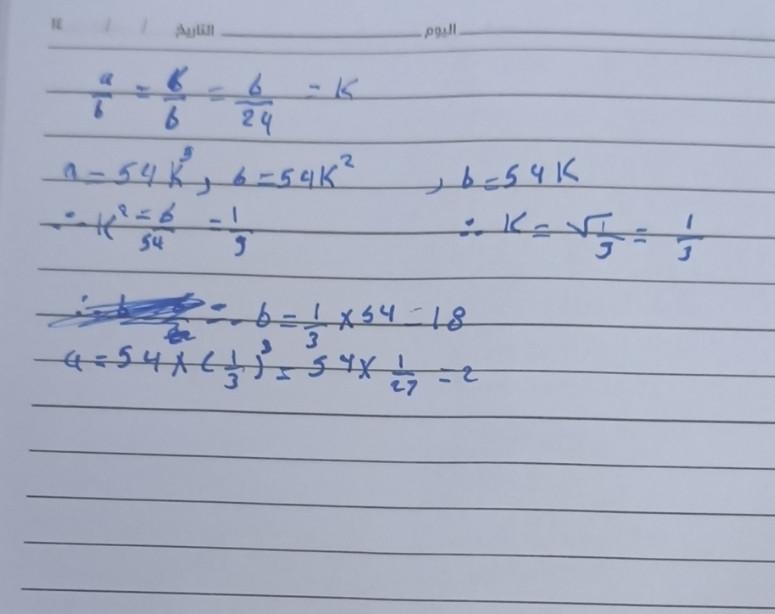 ١٤ / / التاريخ اليوم
a/6 = 6/b = b/24 = K
a = 54K³, 6 = 54K², b = 54K
∴ K² = 6/54 = 1/9 ∴ K = √1/9 = 1/3
∴ b = 1/3 × 54 = 18
a = 54 × (1/3)³ = 54 × 1/27 = 2